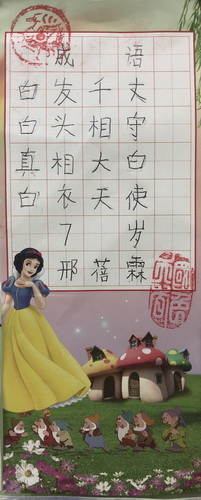 成语
白发千丈
白头相守
真相大白
白衣天使
7岁
邢蓓霖